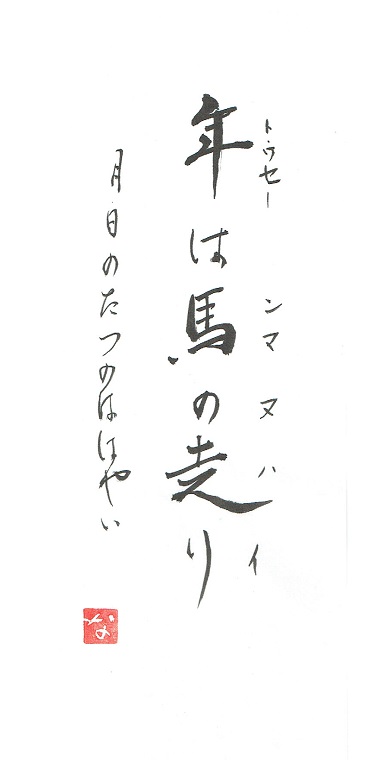 トゥセー ンマヌハイ
年は馬の走り
月日のたつのははやい
な